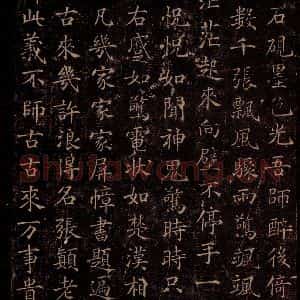 石硯墨色光吾師醉後倚
數千張飄風驟雨驚颯颯
茫茫起來向壁不停手一
怳怳如聞神鬼驚時時只
右蹙如驚電狀如楚漢相
凡幾家家家屏障書題遍
古來幾許浪得名張顛老
此義不師古古來万事貴
Shufawang.CN